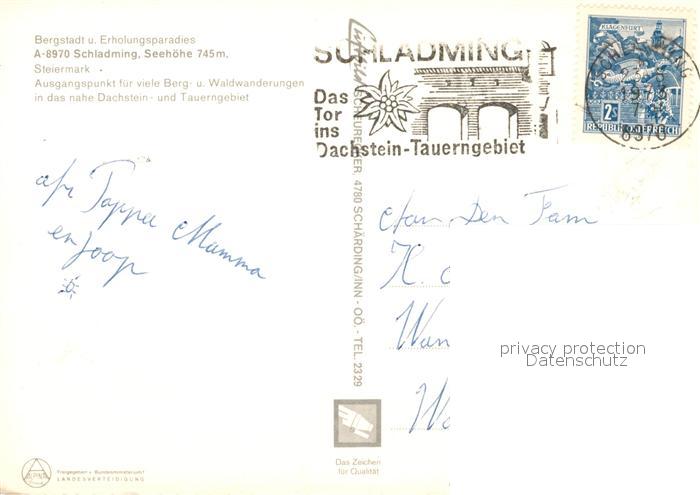 Bergstadt u. Erholungsparadies
A-8970 Schladming, Seehöhe 745m,
Steiermark
Ausgangspunkt für viele Berg- u. Waldwanderungen
in das nahe Dachstein- und Tauerngebiet
SCHLADMING
Das
Tor
ins
Dachstein-Tauerngebiet
KLAGENFURT
2S
REPUBLIK ÖSTERREICH
1973
8970
Pappa Mamma
en Joop
Aan Den Fam
H.
SCHEURECKER, 4780 SCHÄRDING/INN - OÖ. - TEL. 2329
privacy protection
Datenschutz
Das Zeichen
für Qualität
ALPINA
Freigegeben v. Bundesministerium f.
LANDESVERTEIDIGUNG